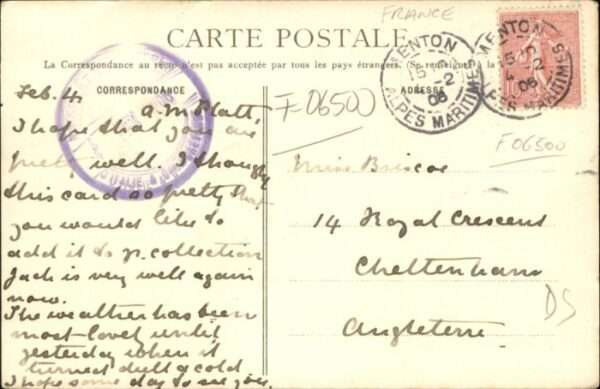 FRANCE
CARTE POSTALE
La Correspondance au recto n'est pas acceptée par tous les pays étrangers. (Se renseigner à la
CORRESPONDANCE
ADRESSE
MENTON
15
-2
06
ALPES MARITIMES
MENTON
15
-2
06
ALPES MARITIMES
10
F06500
F06500
Feb. 4
A. M. Platt
I hope that you are
pretty well. I thought
this card so pretty that
you would like to
add it to yr. collection
Jack is very well again
now.
The weather has been
most lovely until
yesterday when it
turned dull & cold
I hope some day to see you.
Miss Briscoe
14 Royal Crescent
Cheltenham
Angleterre
DS